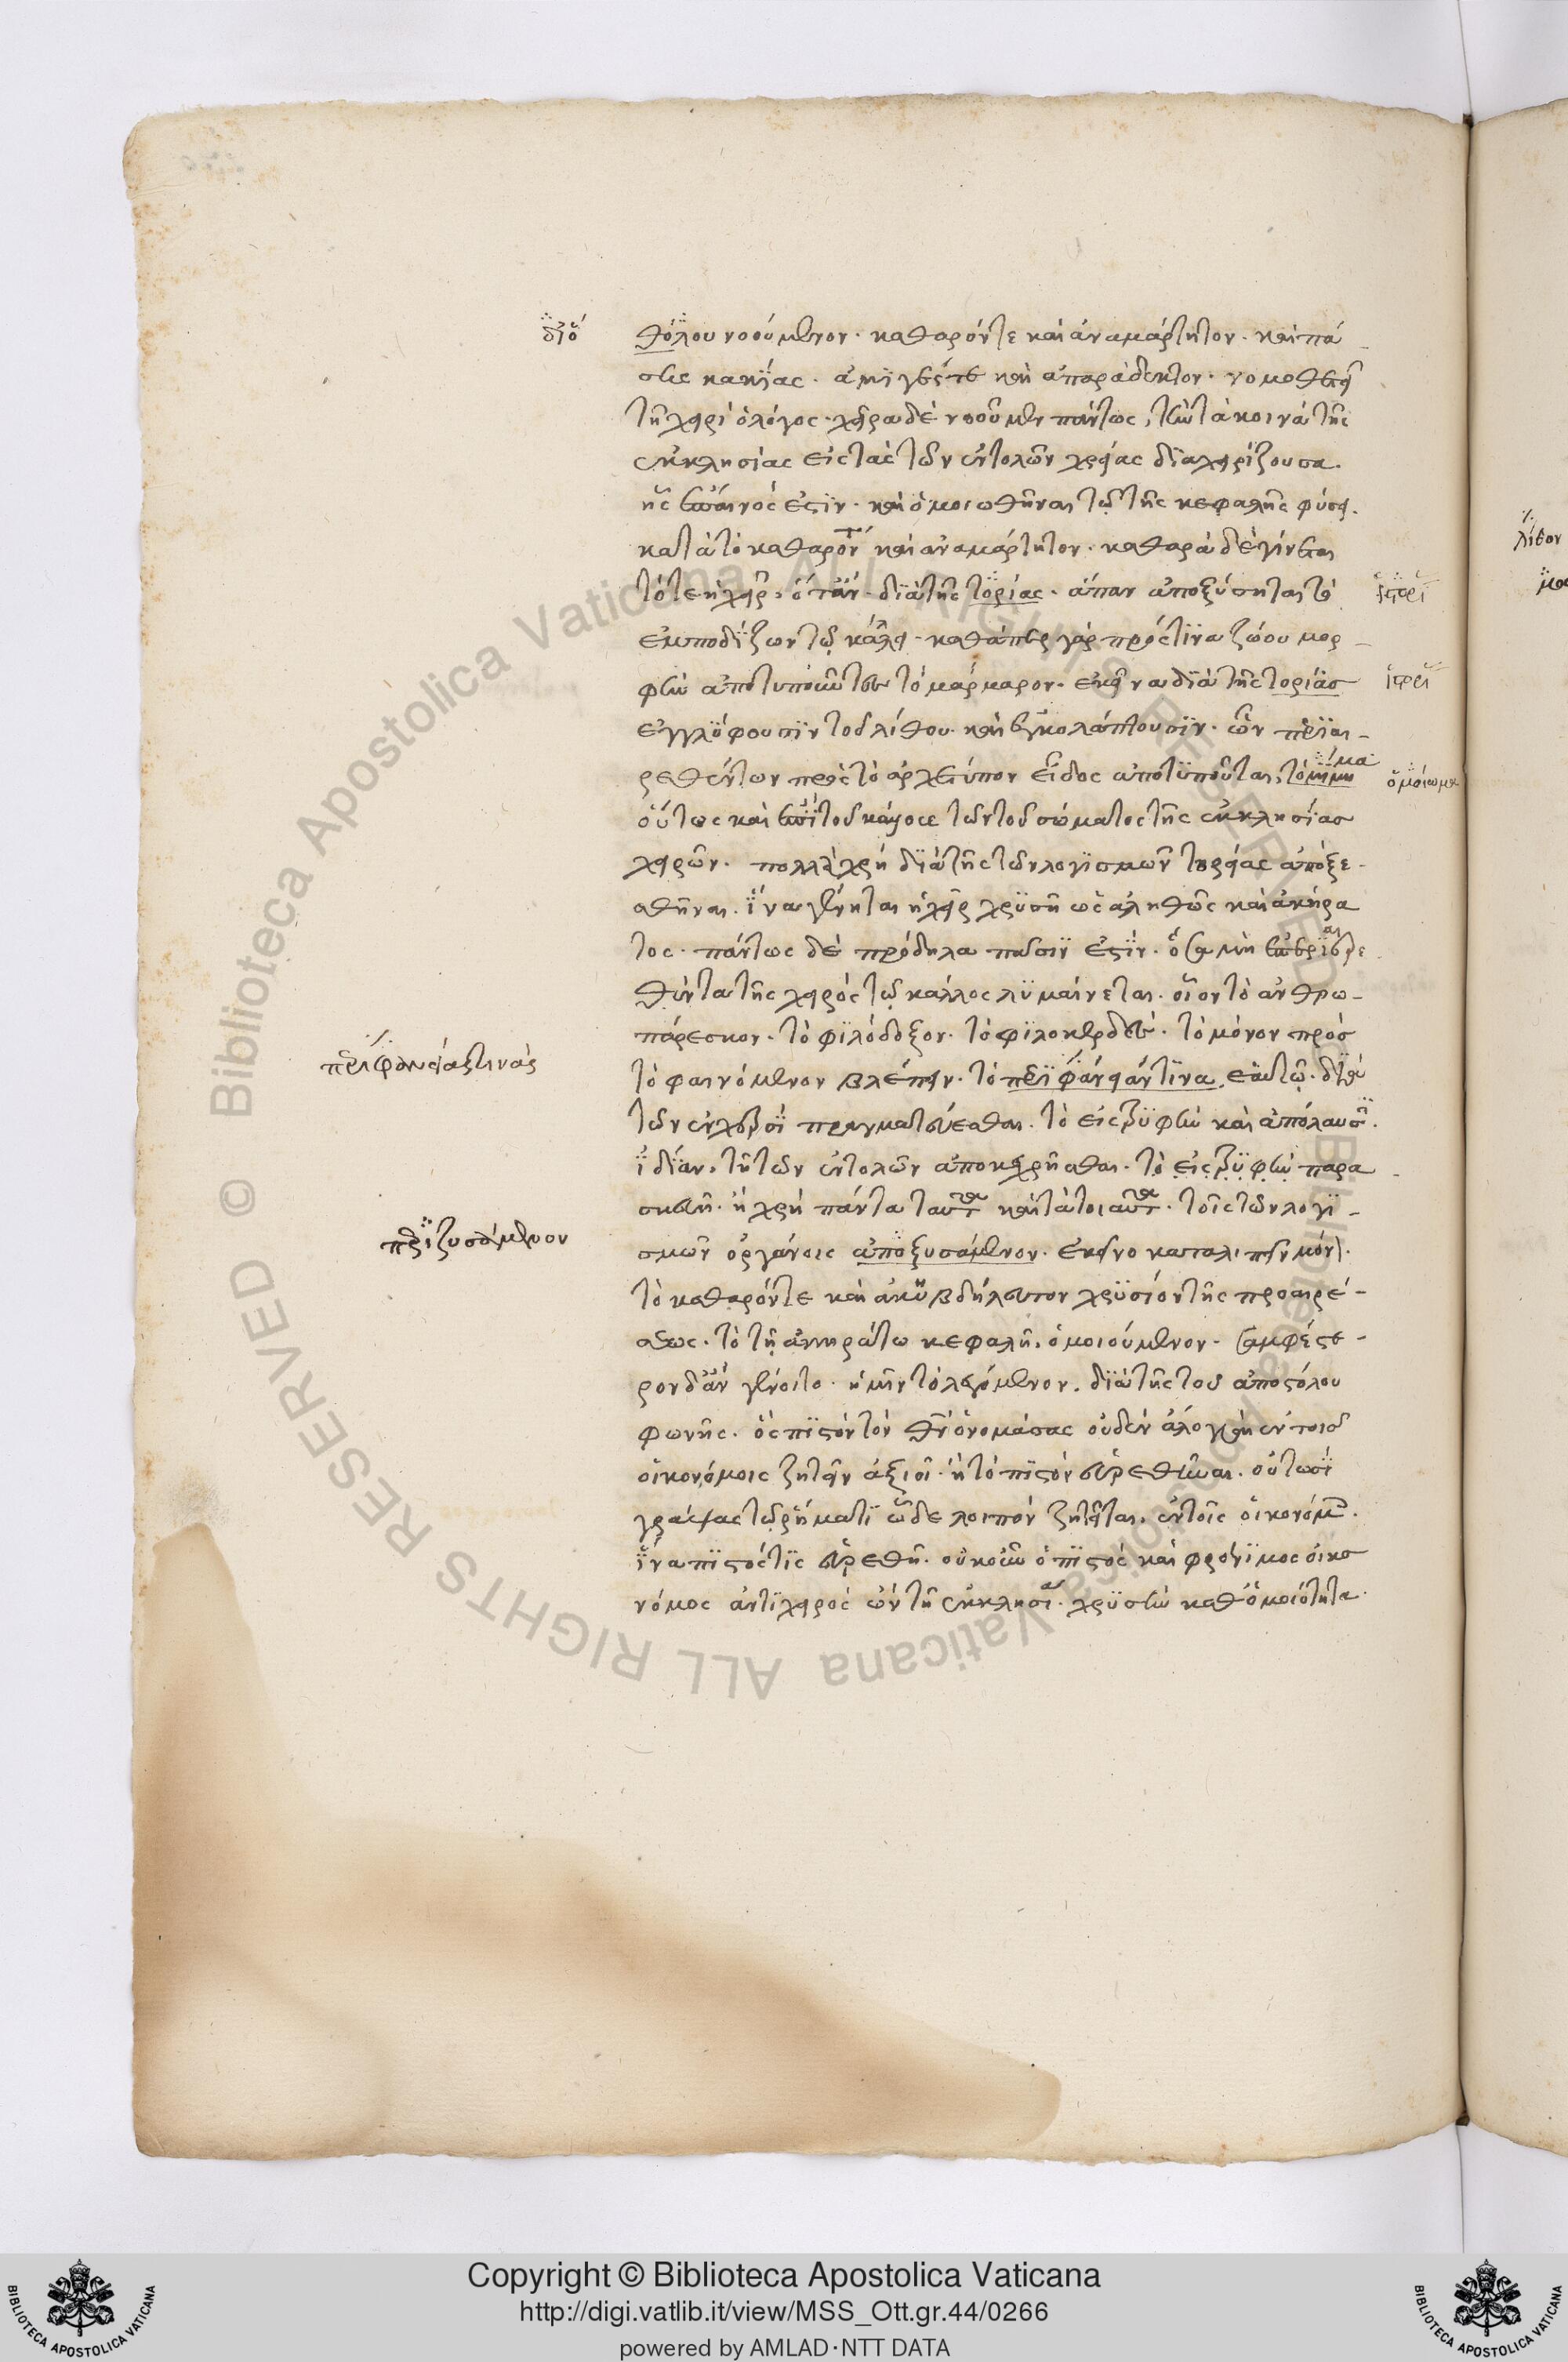 διό
θόλου νοούμενον· καθαρόν τε καὶ ἀναμάρτητον· καὶ πά-
σης κακίας· ἀμιγές τε καὶ ἀπαράδεκτον· νομοθετεῖ
τῇ χειρὶ ὁ λόγος· χεῖρα δὲ νοοῦμεν πάντως, τὴν τὰ κοινὰ τῆς
ἐκκλησίας εἰς τὰς τῶν ἐντολῶν χρείας διαχειρίζουσα.
ἧς ἔπαινός ἐστιν· καὶ ὁμοιωθῆναι τῷ τῆς κεφαλῆς φύσει.
κατὰ τὸ καθαρόν τ καὶ ἀναμάρτητον· καθαρὰ δὲ γίνεται
τότε ἡ χεὶρ, ὅταν· διὰ τῆς τορίας· ἅπαν ἀποξύσηται τὸ
ἐμποδίζων τῷ κάλλει· καθάπερ γὰρ πρός τινα ζώου μορ-
φὴν ἀποτυποῦνται τὸ μάρμαρον· ἐκεῖνα διὰ τῆς τορίας
ἐγγλύφουσιν τοῦ λίθου· καὶ ἐκκολάπτουσιν· ὧν περιαι-
ρεθέντων πρὸς τὸ ἀρχέτυπον εἶδος ἀποτυποῦται, τὸ μίμημα
ὁμοίωμα
οὕτως καὶ ἐπὶ τοῦ κάλλους τῶν τοῦ σώματος τῆς ἐκκλησίας
χειρῶν· πολλὰ χρὴ διὰ τῆς τῶν λογισμῶν τορείας ἀποξε-
σθῆναι· ἵνα γένηται ἡ χεὶρ χρυσῆ ὡς ἀληθῶς καὶ ἀκήρα
τος· πάντως δὲ πρόδηλα πᾶσιν ἐστίν· ὅσα μὴ περιαιρε
θέντα τῆς χειρός τῷ κάλλος λυμαίνεται· οἷον τὸ ἀνθρω-
πάρεσκον· τὸ φιλόδοξον· τὸ φιλοκερδές· τὸ μόνον πρός
τὸ φαινόμενον βλέπειν· τὸ περιφάν τινα ἑαυτῷ· διὰ
τῶν ἐγχειρ πραγματεύεσθαι· τὸ εἰς τρυφὴν καὶ ἀπόλαυσι·
ἰδίαν· τῇ τῶν ἐντολῶν ἀποκεχρῆσθαι· τὸ εἰς τρυφὴν παρα
σκευῇ· ἢ χρὴ πάντα ταῦτα καὶ τὰ τοιαῦτα· τοῖς τῶν λογι-
σμῶν ὀργάνοις ἀποξυσάμενον· ἐκεῖνο καταλιπεῖν μόν·
τὸ καθαρόν τε καὶ ἀκιβδήλευτον χρυσίον τῆς προαιρέ-
σεως· τὸ τῇ ἀκηράτω κεφαλῇ· ὁμοιούμενον· σαμφέστε-
ρον δ' ἂν γένοιτο· ἡμῖν τὸ λεγόμενον· διὰ τῆς τοῦ ἀποστόλου
φωνῆς· ὃς πιστὸν τὸν θν ὀνομάσας οὐδὲν ἄλλο καὶ ἐν τοῖς
οἰκονόμοις ζητεῖν ἀξιοῖ· ἢ τὸ πιστὸν εὑρεθῆναι· οὑτωσὶ
γράψας τῷ ῥήματι ὧδε λοιπὸν ζητεῖται· ἐν τοῖς οἰκονόμ·
ἵνα πιστός τις εὑρεθῇ· οὐκοῦν ὁ πιστὸς καὶ φρόνιμος οἰκο
νόμος ἀντὶ χειρὸς ὢν τῇ ἐκκλησία· χρυσῆν καθ' ὁμοιότητα
περιφαντάς τινάς
περιξυσάμενον
λίθον
Copyright © Biblioteca Apostolica Vaticana
http://digi.vatlib.it/view/MSS_Ott.gr.44/0266
powered by AMLAD·NTT DATA
BIBLIOTECA APOSTOLICA VATICANA
BIBLIOTECA APOSTOLICA VATICANA
© Biblioteca Apostolica Vaticana ALL RIGHTS RESERVED
© Biblioteca Apostolica Vaticana ALL RIGHTS RESERVED